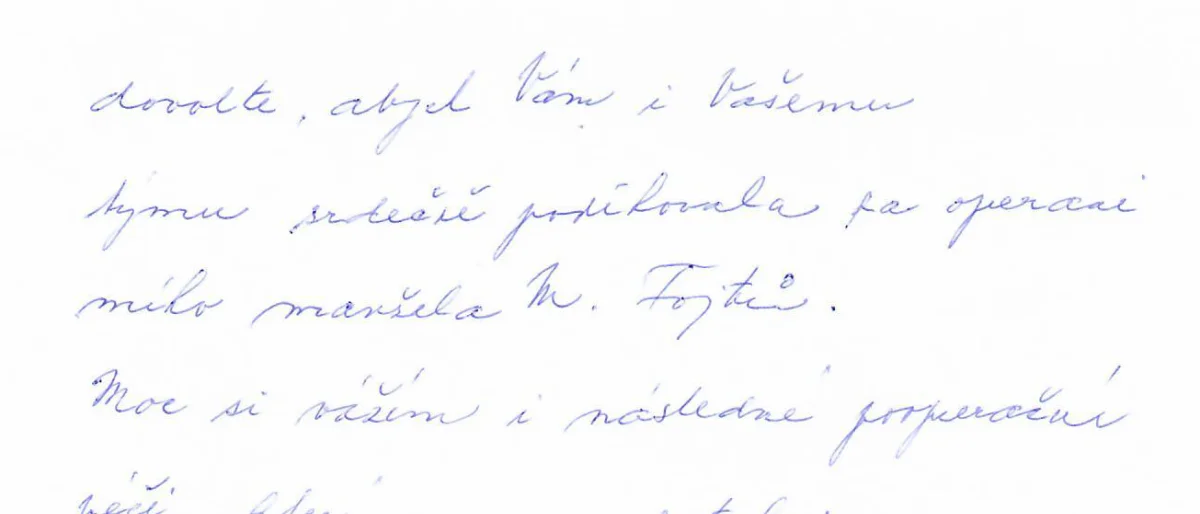 dovolte, abych Vám i Vašemu
týmu srdečně poděkovala za operaci
mého manžela M. Fojtů.
Moc si vážím i následné pooperační
péči